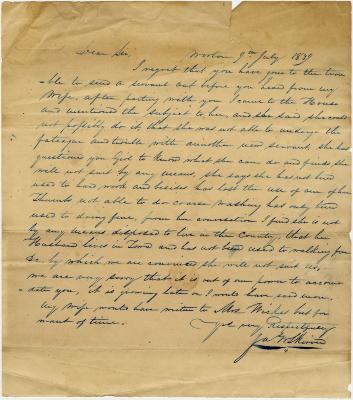 Dear Sir, Weston 9th July 1839
I regret that you have gone to the trou
-ble to send a servant out before you heard from my
Wife, after parting with you I came to the House
and mentioned the subject to her, and she said she could
not possibly do it, that she was not able to undergo the
fatigue and trouble with another new servant she has
questioned you Girl to know what she can do and finds she
will not suit by any means, she says she has not been
used to hard work and besides has lost the use of one of her
Thumbs not able to do coarse washing has only been
used to doing fine, from her conversation I find she is not
by any means disposed to live in the Country, that her
Husband lives in Town and has not been used to walking far
&c. by which we are convinced she will not suit us,
we are very sorry that it is out of our power to accom
date you, it is growing late or I would have said more,
My Wife would have writen to Mrs but for
want of time. Yos very Respectfuly
Jas